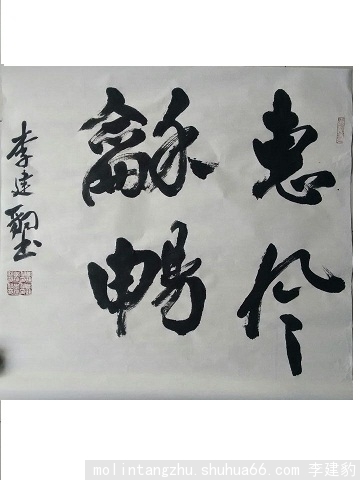 惠风
龢暢
李建豹书
molintangzhu.shuhua66.com 李建豹